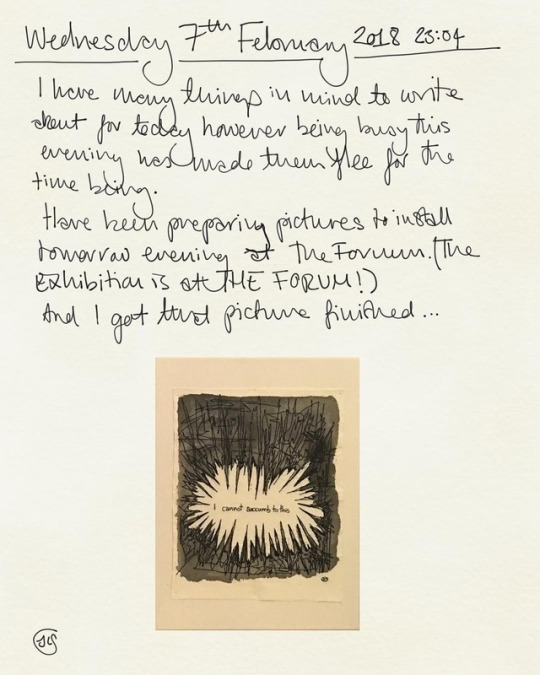 Wednesday 7th February 2018 23:04
I have many things in mind to write
about for today however being busy this
evening has made them flee for the
time being.
Have been preparing pictures to install
tomorrow evening at The Forum. (The
Exhibition is at THE FORUM!)
And I got that picture finished...
I cannot succumb to this